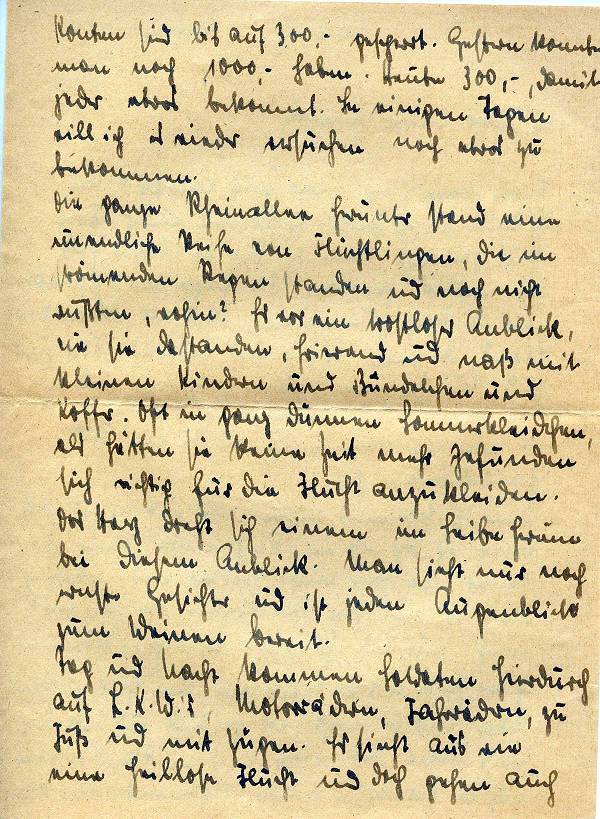 Konten sind bis auf 300,- gesperrt. Gestern konnte
man noch 1000,- haben. Heute 300,-, damit
jeder etwas bekommt. In einigen Tagen
will ich es wieder versuchen noch etwas zu
bekommen.
Die ganze Rheinallee herunter stand eine
unendliche Reihe von Flüchtlingen, die im
strömenden Regen standen und noch nicht
wußten, wohin? Es war ein trostloser Anblick,
wie sie dastanden, frierend und naß mit
kleinen Kindern und Bündelchen und
Koffer. Oft in ganz dünnen Sommerkleidchen,
als hätten sie keine Zeit mehr gefunden
sich richtig für die Flucht anzukleiden.
Das Herz dreht sich einem im Leibe herum
bei diesem Anblick. Man sieht nur noch
ernste Gesichter und ist jeden Augenblick
zum Weinen bereit.
Tag und Nacht kommen Soldaten hierdurch
auf L.K.W.'s, Motorrädern, Fahrrädern, zu
Fuß und mit Zügen. Es sieht aus wie
eine heillose Flucht und doch gehen auch